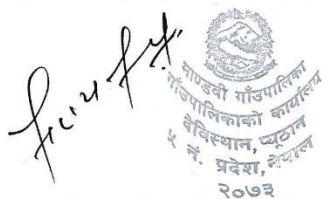 माण्डवी गाँउपालिका
गाँउपालिकाको कार्यालय
देविस्थान, प्यूठान
५ नं. प्रदेश, नेपाल
२०७३